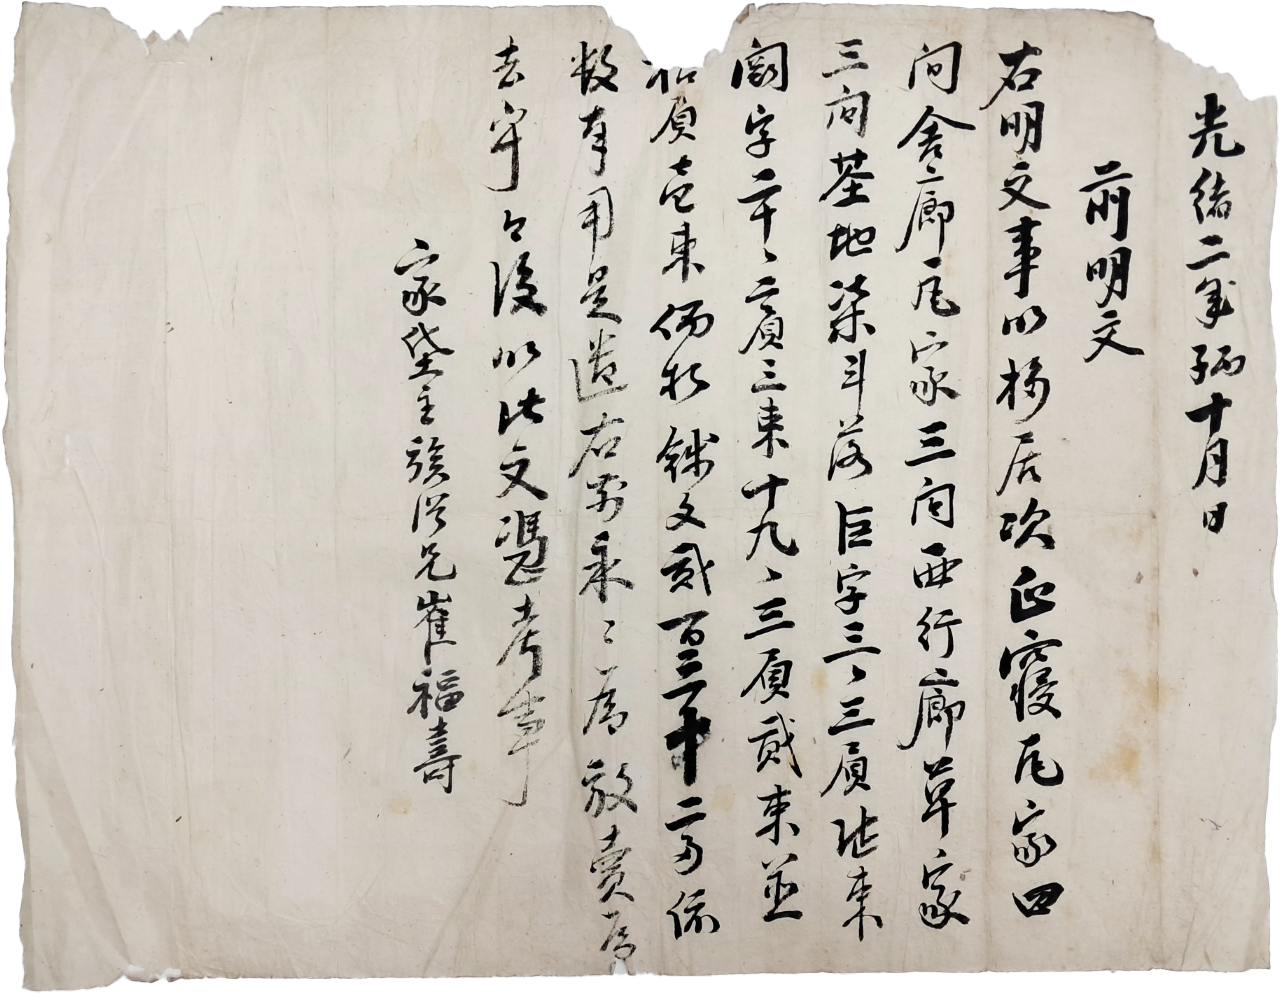 光緒二年丙子十月日
前明文
右明文事以移居次正寢瓦家四
间舍廊瓦家三间西行廊草家
三间基地柒斗落巨字三、三負陆束
闕字二十、二負三束十九、三負貳束並
負壱束價折錢文貳百三十二両依
数奉用是遣右前永々爲放賣爲
去乎日後以此文憑考事
家垈主族從兄崔福壽